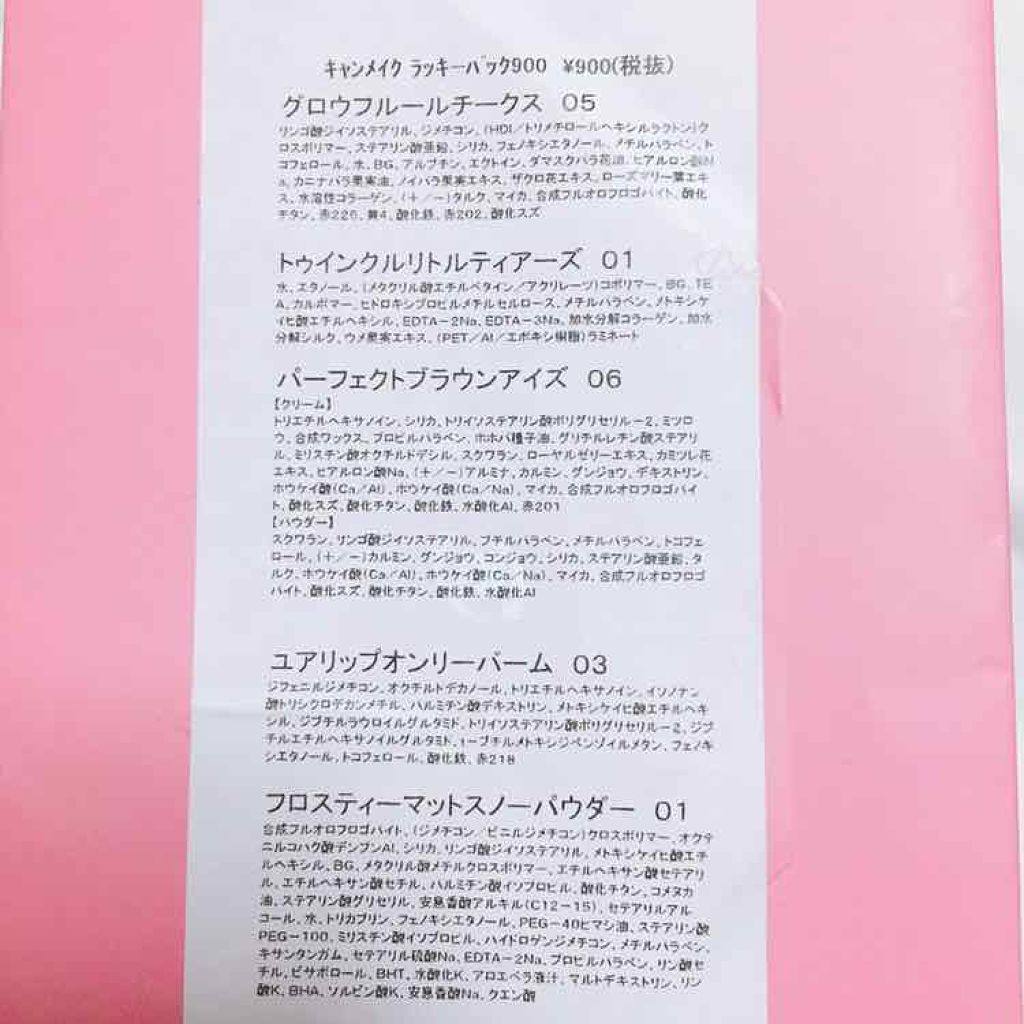 キャンメイク ラッキーパック900 ¥900(税抜)
グロウフルールチークス 05
リンゴ酸ジイソステアリル、ジメチコン、(HDI／トリメチロールヘキシルラクトン)ク
ロスポリマー、ステアリン酸亜鉛、シリカ、フェノキシエタノール、メチルパラベン、ト
コフェロール、水、BG、アルブチン、エクトイン、ダマスクバラ花油、ヒアルロン酸N
a、カニナバラ果実油、ノイバラ果実エキス、ザクロ花エキス、ローズマリー葉エキ
ス、水溶性コラーゲン、(＋／－)タルク、マイカ、合成フルオロフロゴパイト、酸化
チタン、赤226、黄4、酸化鉄、赤202、酸化スズ
トゥインクルリトルティアーズ 01
水、エタノール、(メタクリル酸エチルベタイン／アクリレーツ)コポリマー、BG、TE
A、カルボマー、ヒドロキシプロピルメチルセルロース、メチルパラベン、メトキシケ
イヒ酸エチルヘキシル、EDTA－2Na、EDTA－3Na、加水分解コラーゲン、加水
分解シルク、ウメ果実エキス、(PET／Al／エポキシ樹脂)ラミネート
パーフェクトブラウンアイズ 06
【クリーム】
トリエチルヘキサノイン、シリカ、トリイソステアリン酸ポリグリセリル－2、ミツロ
ウ、合成ワックス、プロピルパラベン、ホホバ種子油、グリチルレチン酸ステアリ
ル、ミリスチン酸オクチルドデシル、スクワラン、ローヤルゼリーエキス、カミツレ花
エキス、ヒアルロン酸Na、(＋／－)アルミナ、カルミン、グンジョウ、デキストリン、
ホウケイ酸(Ca／Al)、ホウケイ酸(Ca／Na)、マイカ、合成フルオロフロゴパイ
ト、酸化スズ、酸化チタン、酸化鉄、水酸化Al、赤201
【パウダー】
スクワラン、リンゴ酸ジイソステアリル、ブチルパラベン、メチルパラベン、トコフェ
ロール、(＋／－)カルミン、グンジョウ、コンジョウ、シリカ、ステアリン酸亜鉛、タ
ルク、ホウケイ酸(Ca／Al)、ホウケイ酸(Ca／Na)、マイカ、合成フルオロフロゴ
パイト、酸化スズ、酸化チタン、酸化鉄、水酸化Al
ユアリップオンリーバーム 03
ジフェニルジメチコン、オクチルドデカノール、トリエチルヘキサノイン、イソノナン
酸トリシクロデカンメチル、パルミチン酸デキストリン、メトキシケイヒ酸エチルヘキ
シル、ジブチルラウロイルグルタミド、トリイソステアリン酸ポリグリセリル－2、ジブ
チルエチルヘキサノイルグルタミド、t－ブチルメトキシジベンゾイルメタン、フェノキ
シエタノール、トコフェロール、酸化鉄、赤218
フロスティーマットスノーパウダー 01
合成フルオロフロゴパイト、(ジメチコン／ビニルジメチコン)クロスポリマー、オクテ
ニルコハク酸デンプンAl、シリカ、リンゴ酸ジイソステアリル、メトキシケイヒ酸エチ
ルヘキシル、BG、メタクリル酸メチルクロスポリマー、エチルヘキサン酸セテアリ
ル、エチルヘキサン酸セチル、パルミチン酸イソプロピル、酸化チタン、コメヌカ
油、ステアリン酸グリセリル、安息香酸アルキル(C12－15)、セテアリルアル
コール、水、トリカプリン、フェノキシエタノール、PEG－40ヒマシ油、ステアリン酸
PEG－100、ミリスチン酸イソプロピル、ハイドロゲンジメチコン、メチルパラベン、
キサンタンガム、セテアリル硫酸Na、EDTA－2Na、プロピルパラベン、リン酸セ
チル、ビサボロール、BHT、水酸化K、アロエベラ液汁、マルトデキストリン、リン
酸K、BHA、ソルビン酸K、安息香酸Na、クエン酸